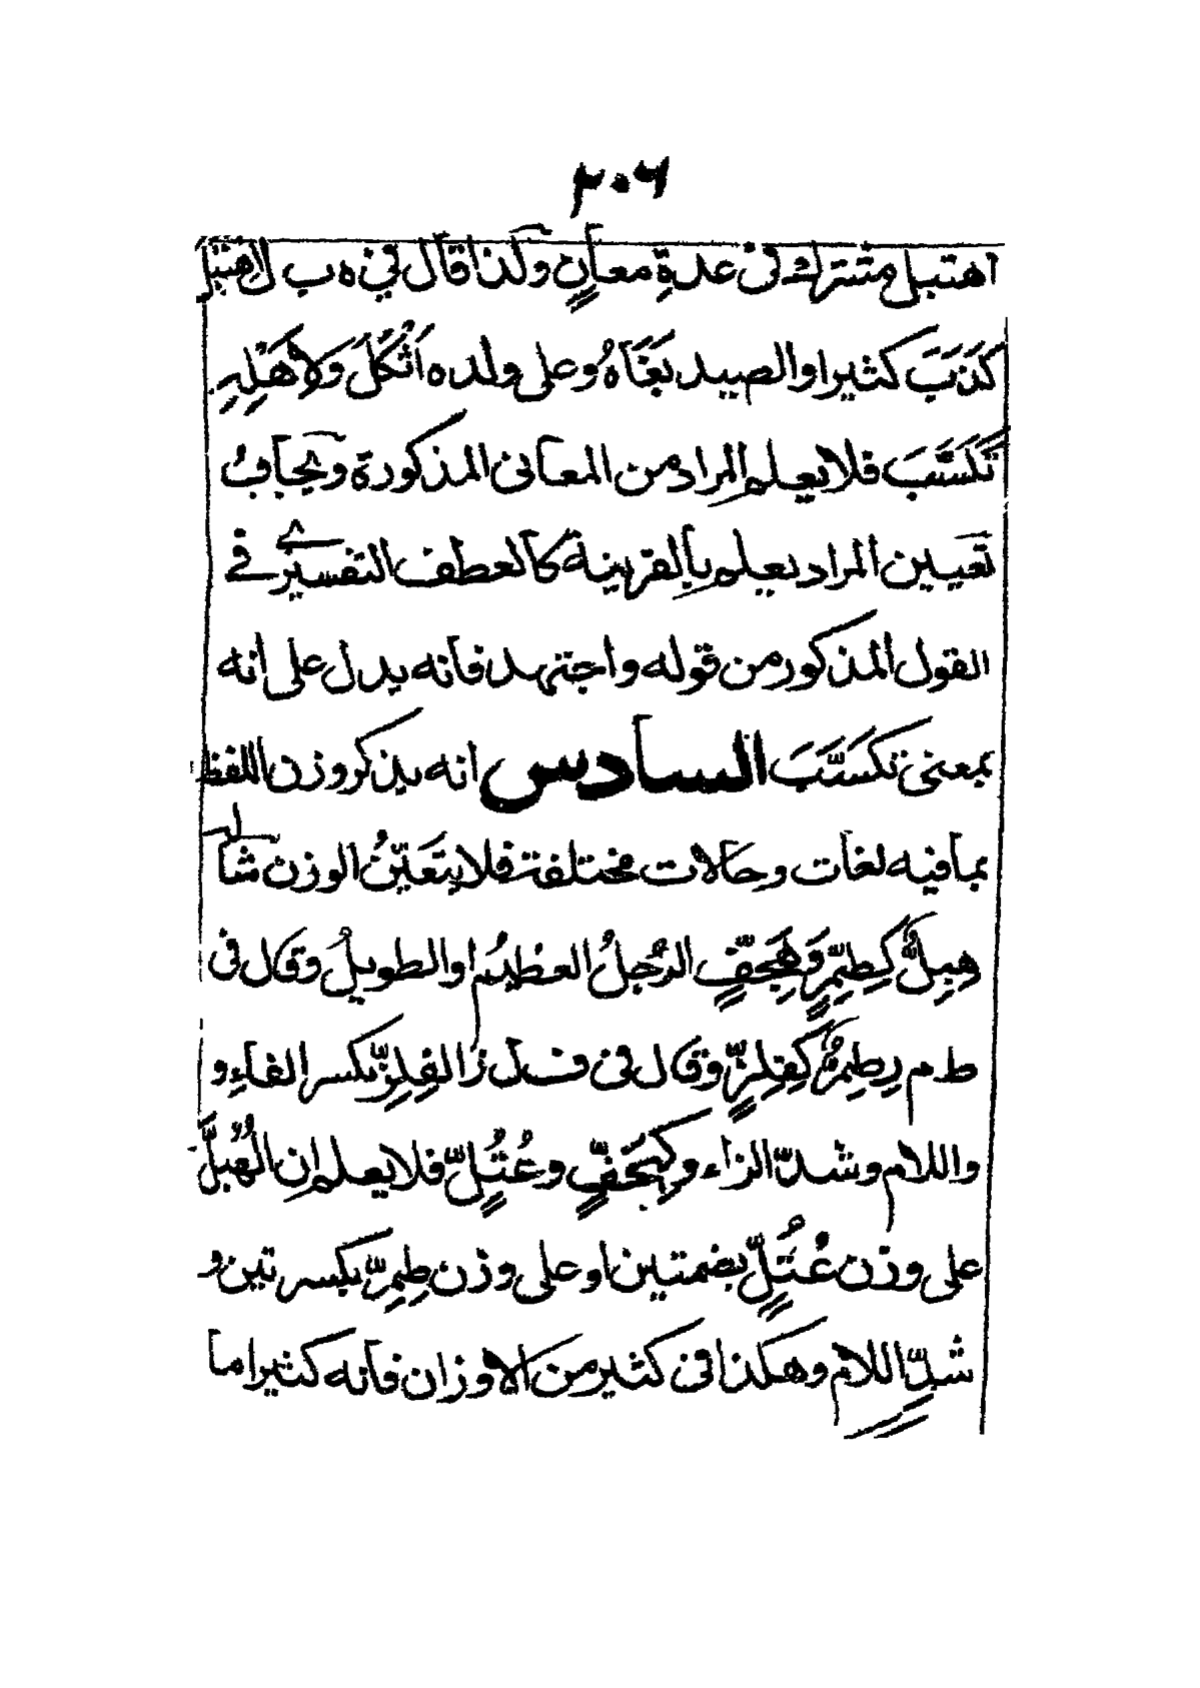 ٣٠٦
اهتبل مشترك فى عدةِ معانٍ ولذا قال في ه ب ل اهتبل
كَذَبَ كثيرا والصيد بَغَاهُ وعلى ولده اَثْكَلَ وَلاَهْلِهِ
تَكَسَّبَ فلا يعلم المراد من المعانى المذكورة ويجابُ
تعيين المراد يعلم بالقرينة كالعطف التفسيرى فے
القول المذكور من قوله واجتهد فانه يدل على انه
بمعنى تَكَسَّبَ السادس انه يذكر وزن اللفظ
بما فيه لغات وحالات مختلفة فلا يتعَيّنُ الوزن مثاله
هِبِلٌّ كَطِمِرٍّ وَهِجَفٍّ الرّجلُ العظيم او الطويلُ وقال فى
ط م ر طِمِرٌّ كَفِلِزٍّ وقال فى ف ل ز الفِلِزُّ بكسر الفاءِ و
واللام وشدّ الزاء وكَهِجَفٍّ وعُتُلٍّ فلا يعلم ان الهُبُلَّ
على وزن عُتُلٍّ بضمتين او على وزن طِمِرٍّ بكسرتين و
شدِّ اللام وهكذا فى كثير من الاوزان فانه كثيرا ما